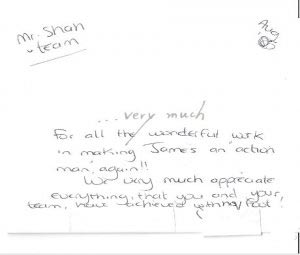 Mr. Shah
& team
Aug
05
... very much
For all the wonderful work
in making James an "action
man" again!!
We very much appreciate
everything that you and your
team, have achieved with my foot!